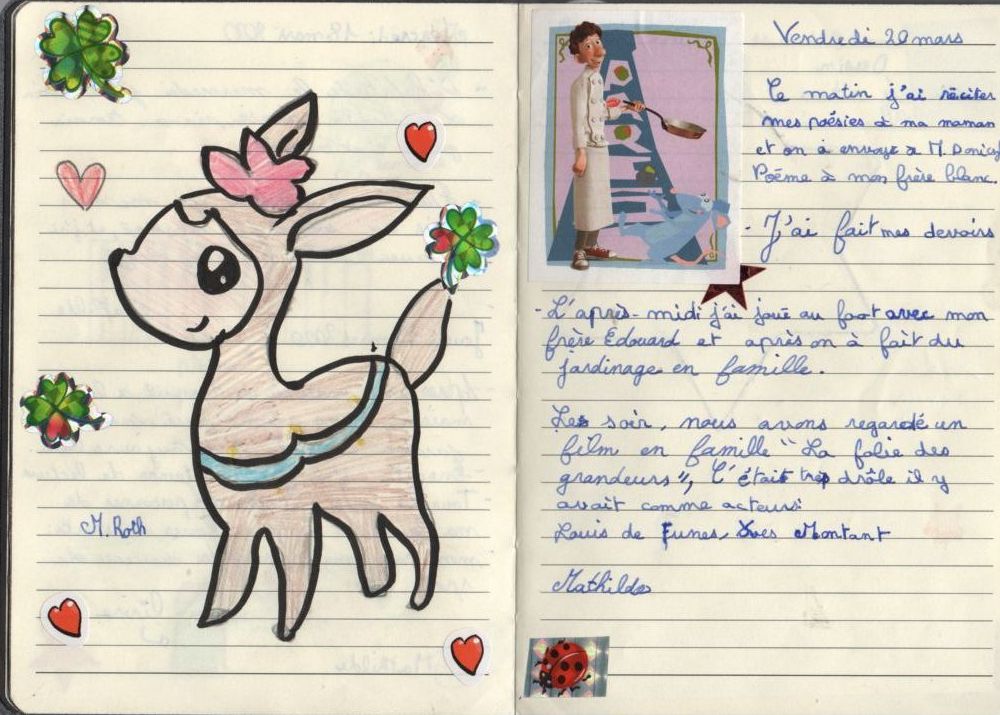 M. Roth
Vendredi 20 mars
Ce matin j'ai réciter
mes poésies à ma maman
et on à envoyé à M. Donica
Poème à mon frère blanc.
- J'ai fait mes devoirs
- L'après-midi j'ai joué au foot avec mon
frère Edouard et après on à fait du
jardinage en famille.
Le soir, nous avons regardé un
film en famille "La folie des
grandeurs", C'était très drôle il y
avait comme acteurs:
Louis de Funes, Yves Montant
Mathilde